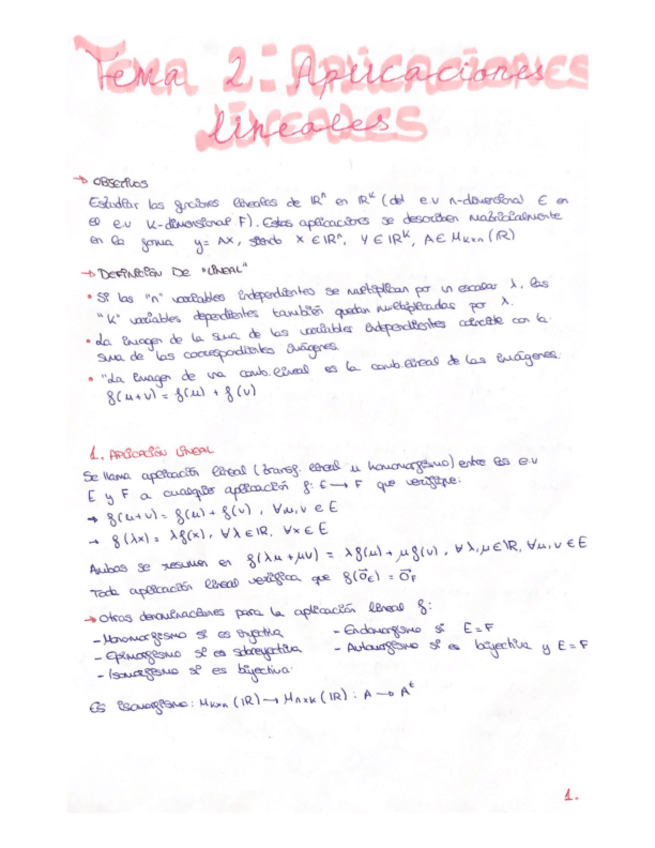 Tema 2: Aplicaciones
lineales
→ OBJETIVOS
Estudiar las funciones lineales de ℝⁿ en ℝᴷ (del e.v n-dimensional E en
el e.v K-dimensional F). Estas aplicaciones se describen matricialmente
en la forma y = AX, siendo X ∈ ℝⁿ, Y ∈ ℝᴷ, A ∈ M_Kxn (ℝ)
→ DEFINICIÓN DE "LINEAL"
• Si las "n" variables independientes se multiplican por un escalar λ, las
"K" variables dependientes también quedan multiplicadas por λ.
• La imagen de la suma de las variables independientes coincide con la
suma de las correspondientes imágenes.
• "La imagen de una comb. lineal es la comb. lineal de las imágenes.
f(u+v) = f(u) + f(v)
1. APLICACIÓN LINEAL
Se llama aplicación lineal (transf. lineal u homomorfismo) entre los e.v
E y F a cualquier aplicación f: E → F que verifique:
→ f(u+v) = f(u) + f(v), ∀u,v ∈ E
→ f(λx) = λf(x), ∀λ ∈ ℝ, ∀x ∈ E
Ambas se resumen en f(λu + μv) = λf(u) + μf(v), ∀λ,μ ∈ ℝ, ∀u,v ∈ E
Toda aplicación lineal verifica que f(0⃗_E) = 0⃗_F
→ Otras denominaciones para la aplicación lineal f:
- Monomorfismo si es inyectiva
- Endomorfismo si E = F
- Epimorfismo si es sobreyectiva
- Automorfismo si es biyectiva y E = F
- Isomorfismo si es biyectiva.
Es isomorfismo: M_Kxn (ℝ) → M_nxK (ℝ) : A → Aᵗ
1.